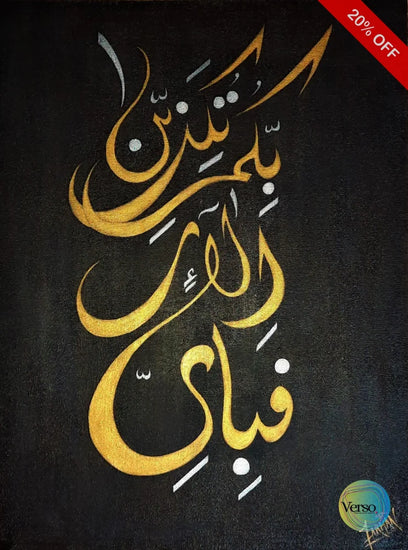 20% OFF
فَبِاَيِّ
اٰلَاءِ
رَبِّكُمَا
تُكَذِّبٰنِ
Verso